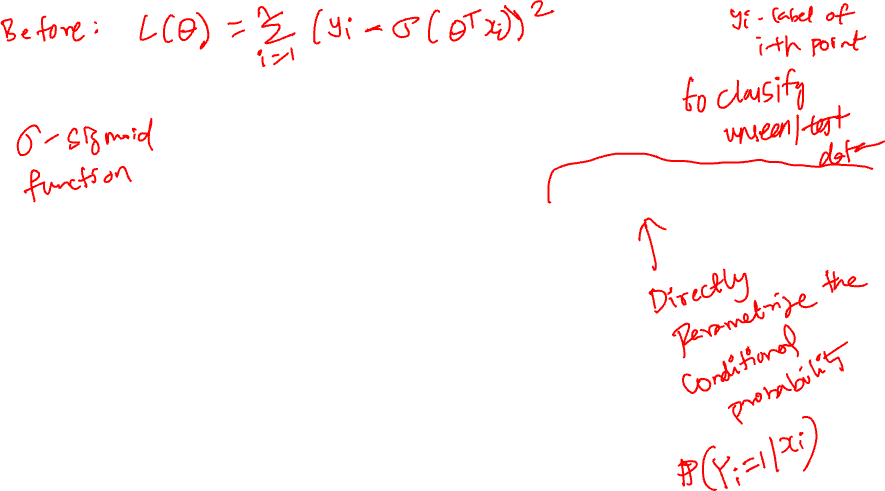 Before: L(θ) = Σ_{i=1}^{n} (yi - σ(θᵀxi))²
yi - label of
i-th point
to classify
unseen/test
data
σ - sigmoid
function
Directly
Parametrize the
Conditional
probability
P(Yi=1|xi)